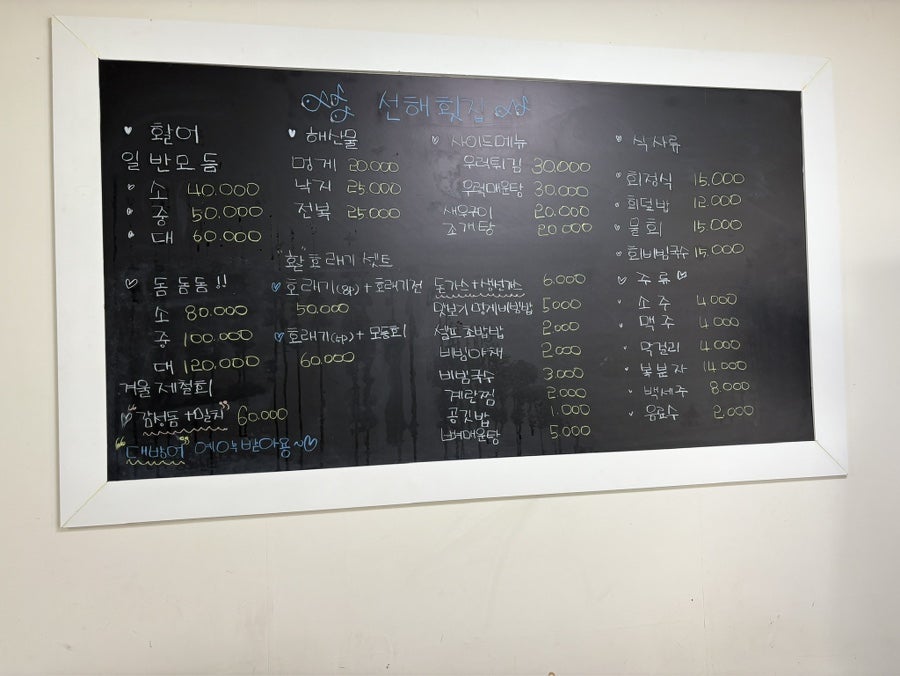 선해횟집
♥ 활어
일반모듬
· 소 40.000
· 중 50.000
· 대 60.000
♡ 돔돔돔!!
소 80.000
중 100.000
대 120.000
겨울제철회
♡ "감성돔+밀치" 60.000
"대방어" 예약받아용~♡
♥ 해산물
멍게 20.000
낙지 25.000
전복 25.000
"활"호래기 셋트
♥ 호래기(8p)+호래기전
50.000
♥ 호래기(4p)+모듬회
60.000
♡ 사이드메뉴
우럭튀김 30.000
우럭매운탕 30.000
새우구이 20.000
조개탕 20.000
돈가스+생선가스 6.000
맛보기멍게비빔밥 5000
셀프초밥밥 2000
비빔야채 2000
비빔국수 3.000
계란찜 2000
공깃밥 1.000
뼈매운탕 5.000
♡ 식사류
회정식 15.000
회덮밥 12.000
물회 15.000
회비빔국수 15.000
♡ 주류 ♡
소주 4000
맥주 4000
막걸리 4000
복분자 14000
백세주 8.000
음료수 2.000